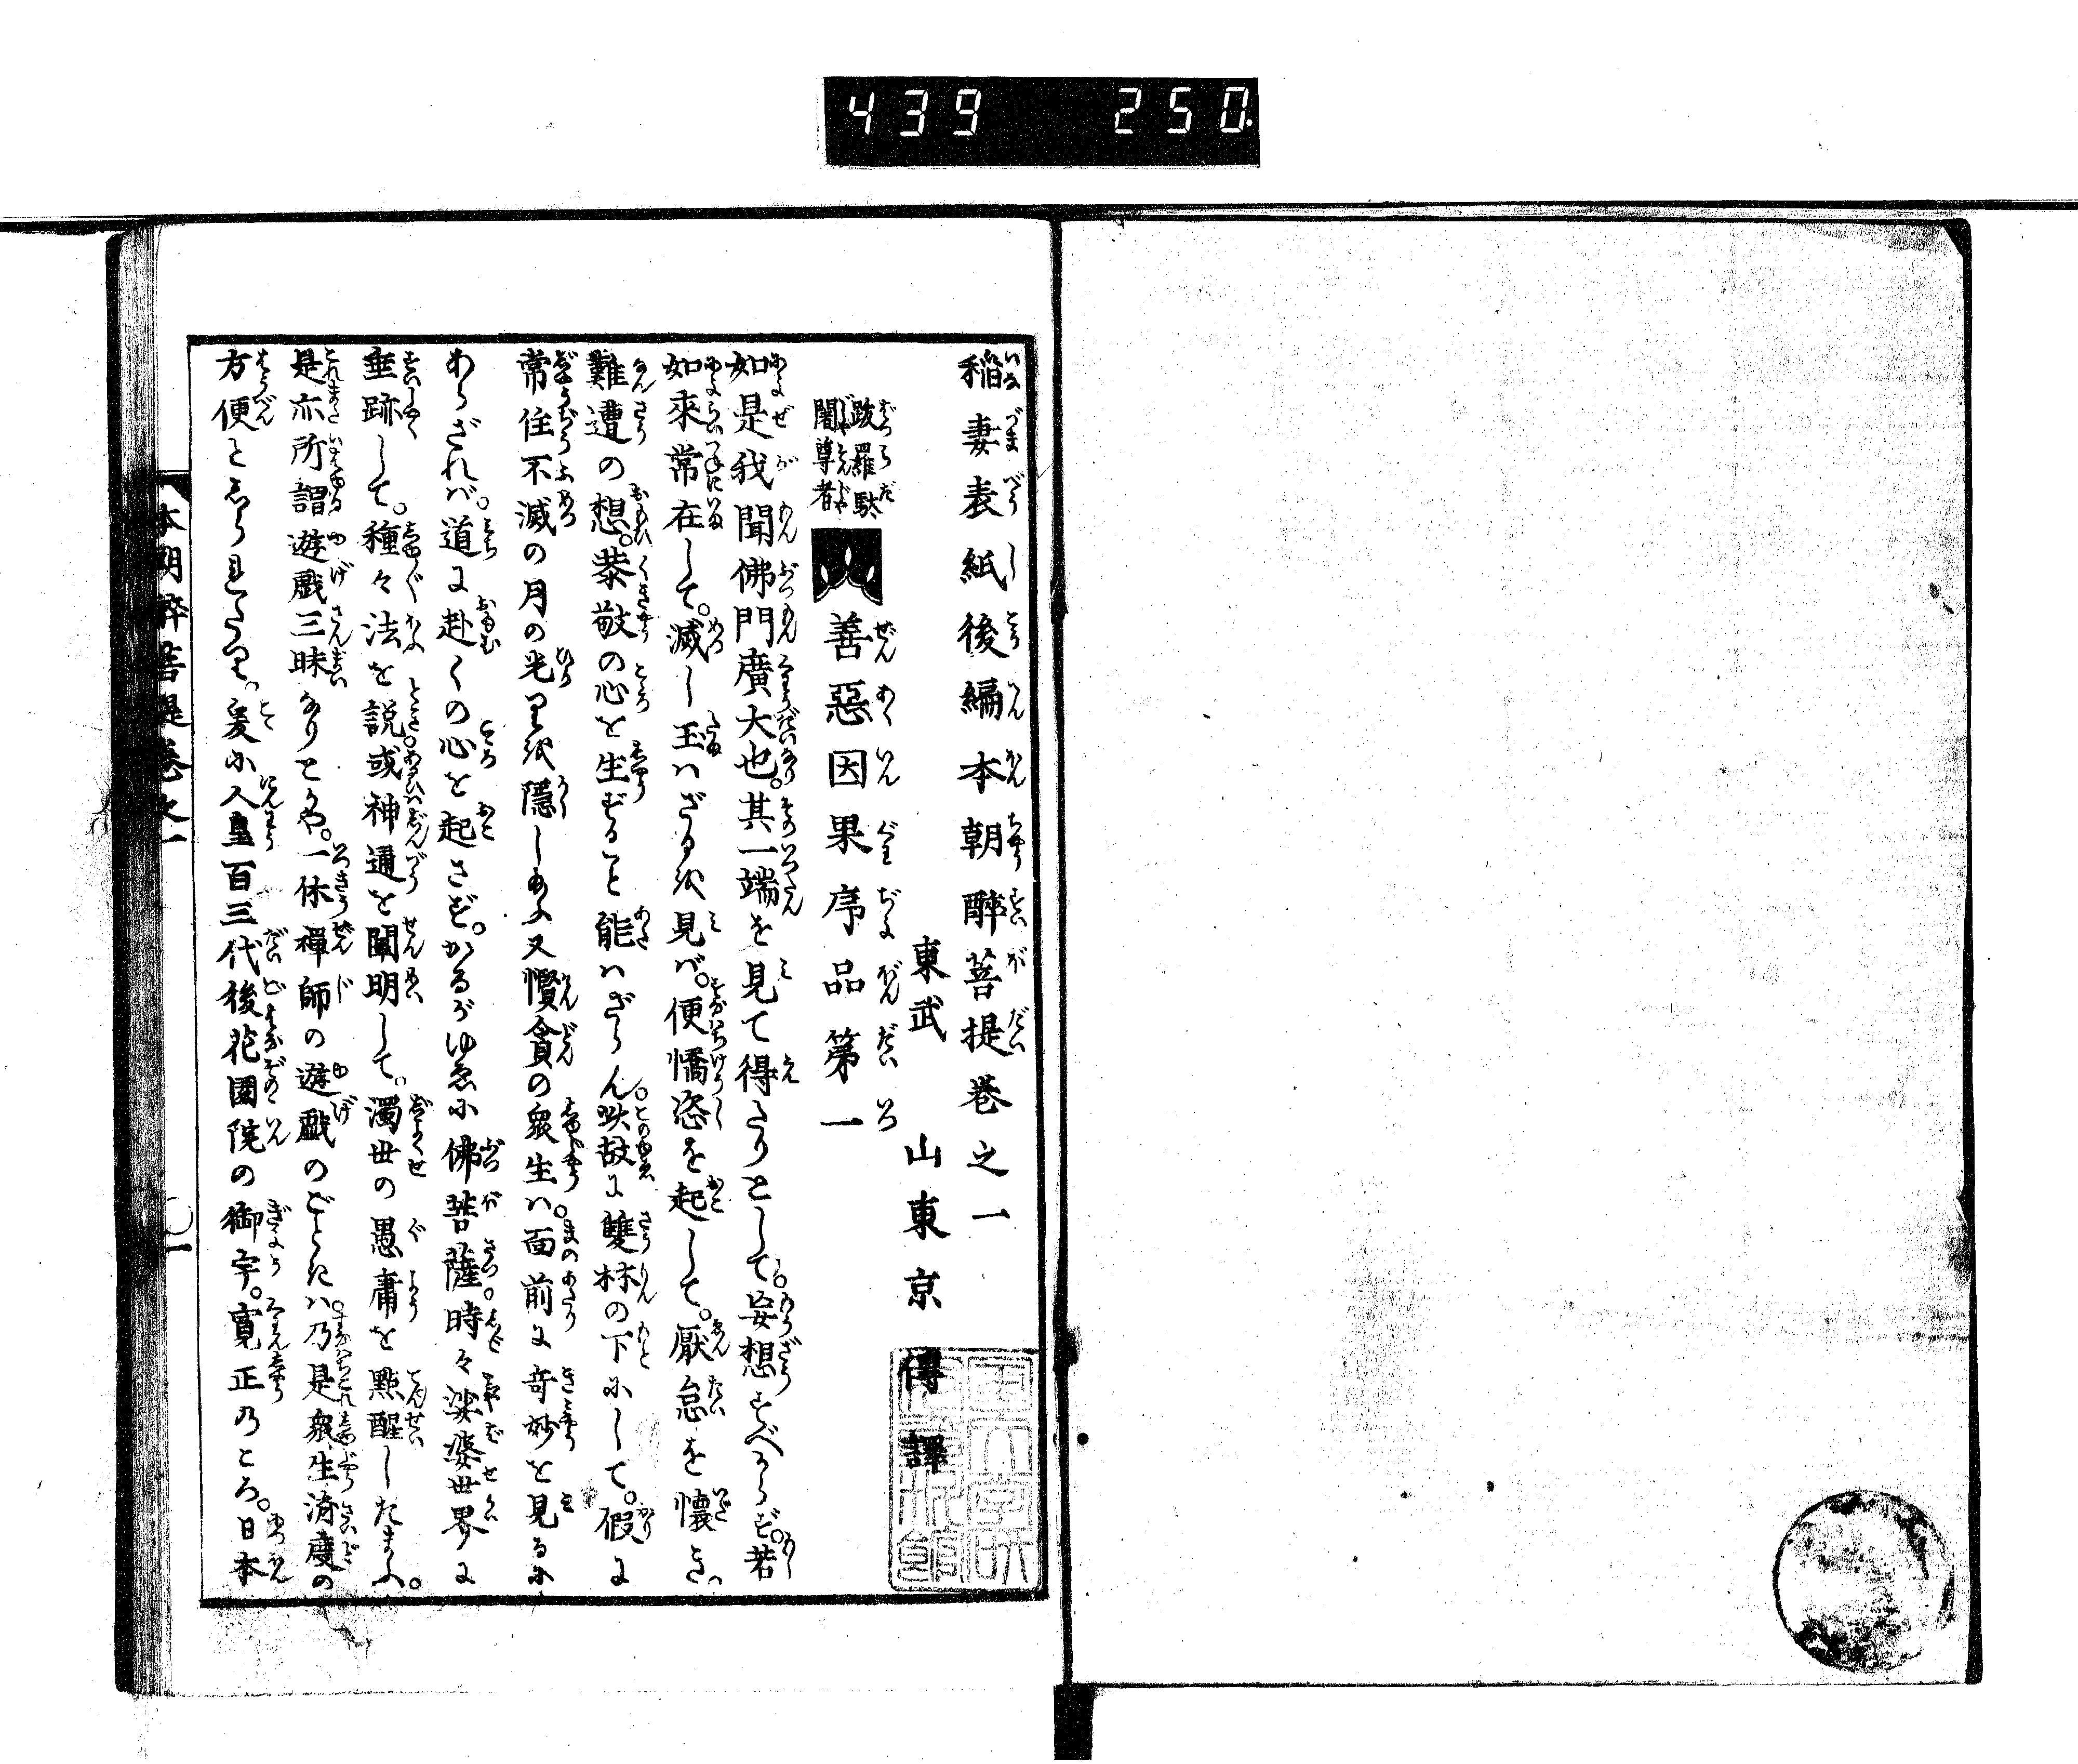 439 250
稲妻表紙後編本朝酔菩提巻之一
東武 山東京傳譯
跋羅駄
闍尊者
善惡因果序品第一
如是我聞佛門廣大也。其一端を見て得たりとして。妄想すべからず。若
如来常在して。滅し玉はざるを見ば。便憍恣を起して。厭怠を懐き。
難遭の想。恭敬の心を生ずること能はざらん。故に雙林の下にして。假に
常住不滅の月の光りを隠しあふ又慳貪の衆生は。面前に奇妙を見るに
あらざれば。道に赴くの心を起さず。かるがゆゑに佛菩薩時々娑婆世界に
垂跡して。種々法を説或神通を闡明して。濁世の愚庸を點醒したまふ。
是亦所謂遊戯三昧なりとかや。一休禪師の遊戯のごときは。乃是衆生済度の
方便としられたり。爰に人皇百三代後花園院の御宇。寛正のころ。日本
本朝酔菩提巻之一
一